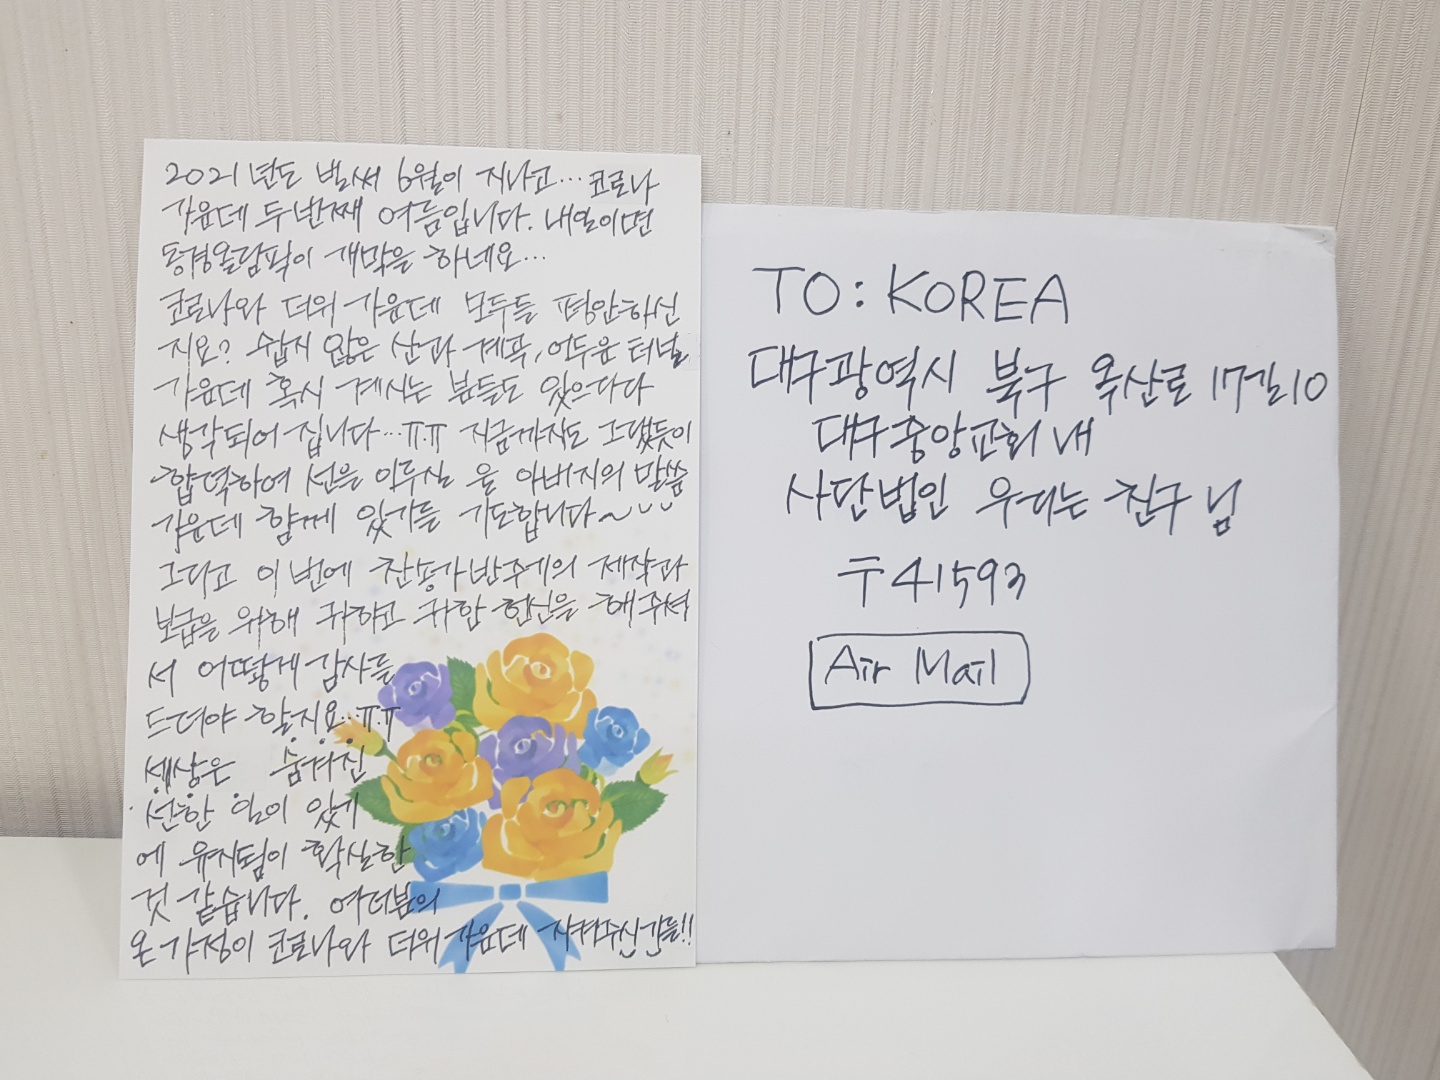 2021년도 벌써 6월이 지나고... 코로나
가운데 두번째 여름입니다. 내일이면
동경올림픽이 개막을 하네요...
코로나와 더위 가운데 모두들 평안하신
지요? 쉽지 않은 산과 계곡, 어두운 터널
가운데 혹시 계시는 분들도 있으리라
생각되어 집니다...ㅠ.ㅠ 지금까지도 그랬듯이
합력하여 선을 이루실 울 아버지의 말씀
가운데 함께 있기를 기도합니다~
그리고 이번에 찬송가반주기의 제작과
보급을 위해 귀하고 귀한 헌신을 해주셔
서 어떻게 감사를
드려야 할지요...ㅠ.ㅠ
세상은 숨겨진
선한 일이 있기
에 유지됨이 확실한
것 같습니다. 여러분의
온 가정이 코로나와 더위 가운데 지켜주신길를!!
TO: KOREA
대구광역시 북구 옥산로 17길 10
대구중앙교회 내
사단법인 우리는 친구 님
〒41593
Air Mail